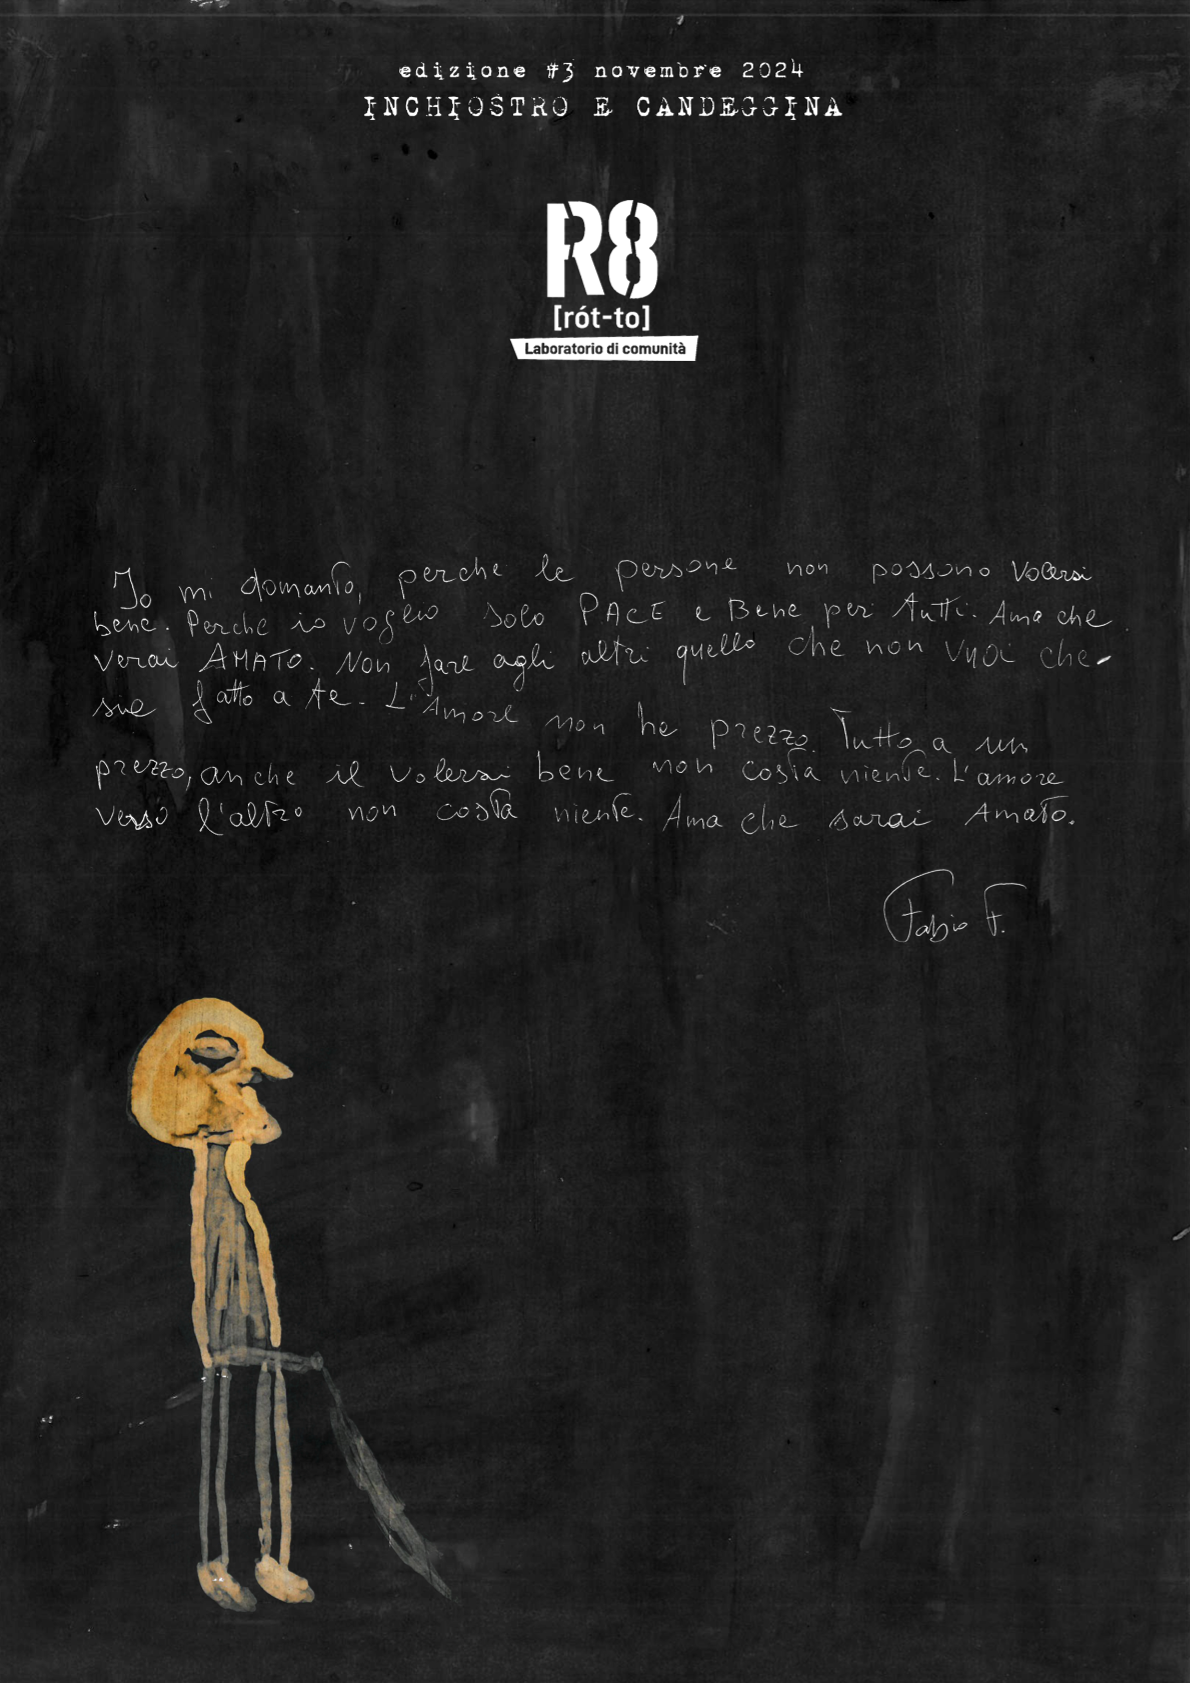 edizione #3 novembre 2024
INCHIOSTRO E CANDEGGINA
R8
[rót-to]
Laboratorio di comunità
Io mi domanto, perche le persone non possono volersi
bene. Perche io voglio solo PACE e Bene per tutti. Ama che
verai AMATO. Non fare agli altri quello che non vuoi che
sie fatto a te. L'Amore non ha prezzo. Tutto a un
prezzo, anche il volersi bene non costa niente. L'amore
verso l'altro non costa niente. Ama che sarai Amato.
Fabio F.